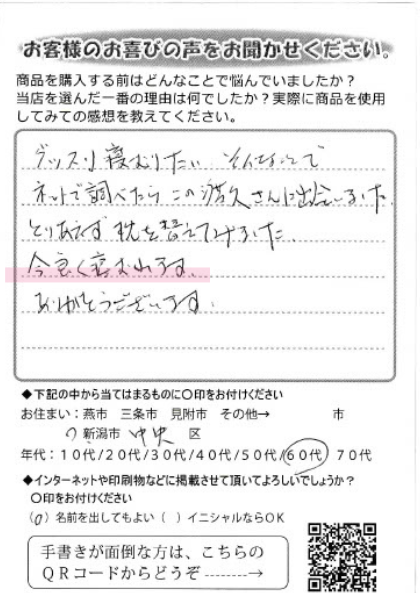 お客様のお喜びの声をお聞かせください。
商品を購入する前はどんなことで悩んでいましたか？
当店を選んだ一番の理由は何でしたか？実際に商品を使用
してみての感想を教えてください。
グッスリ寝むりたい そんなことで
ネットで調べたら この さんに出会いました
とりあえず 枕を替えてみました、
今良く寝むれます、
ありがとうございます。
◆下記の中から当てはまるものに○印をお付けください
お住まい：燕市 三条市 見附市 その他→ 市
新潟市 中央 区
年代：10代/20代/30代/40代/50代/60代 70代
◆インターネットや印刷物などに掲載させて頂いてよろしいでしょうか？
○印をお付けください
(○) 名前を出してもよい ( ) イニシャルならOK
手書きが面倒な方は、こちらの
QRコードからどうぞ--------→